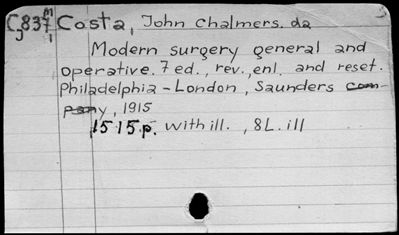 C837 M Costa, John Chalmers. da
J 1
Modern surgery general and
operative. 7 ed., rev., enl. and reset.
Philadelphia - London, Saunders com-
pany, 1915
1515p. with ill., 8L. ill